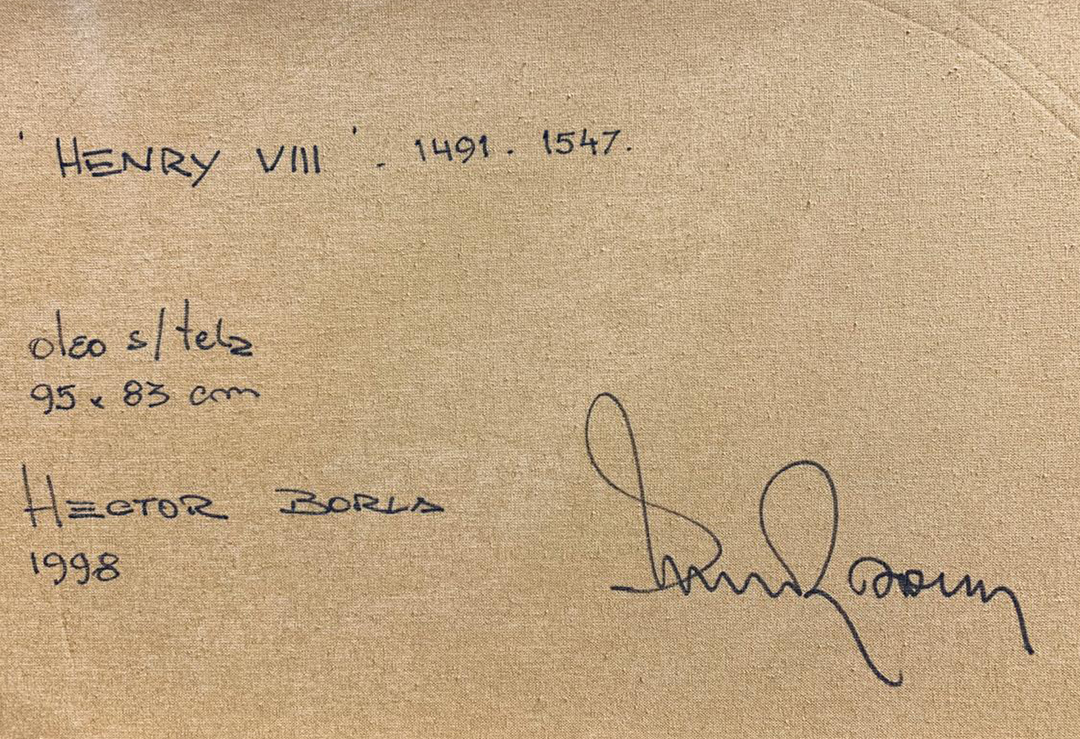 'HENRY VIII'. 1491. 1547.
oleo s/tela
95x83 cm
HECTOR BORLA
1998